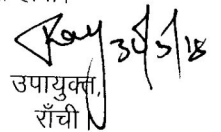 30/5/18
उपायुक्त,
राँची